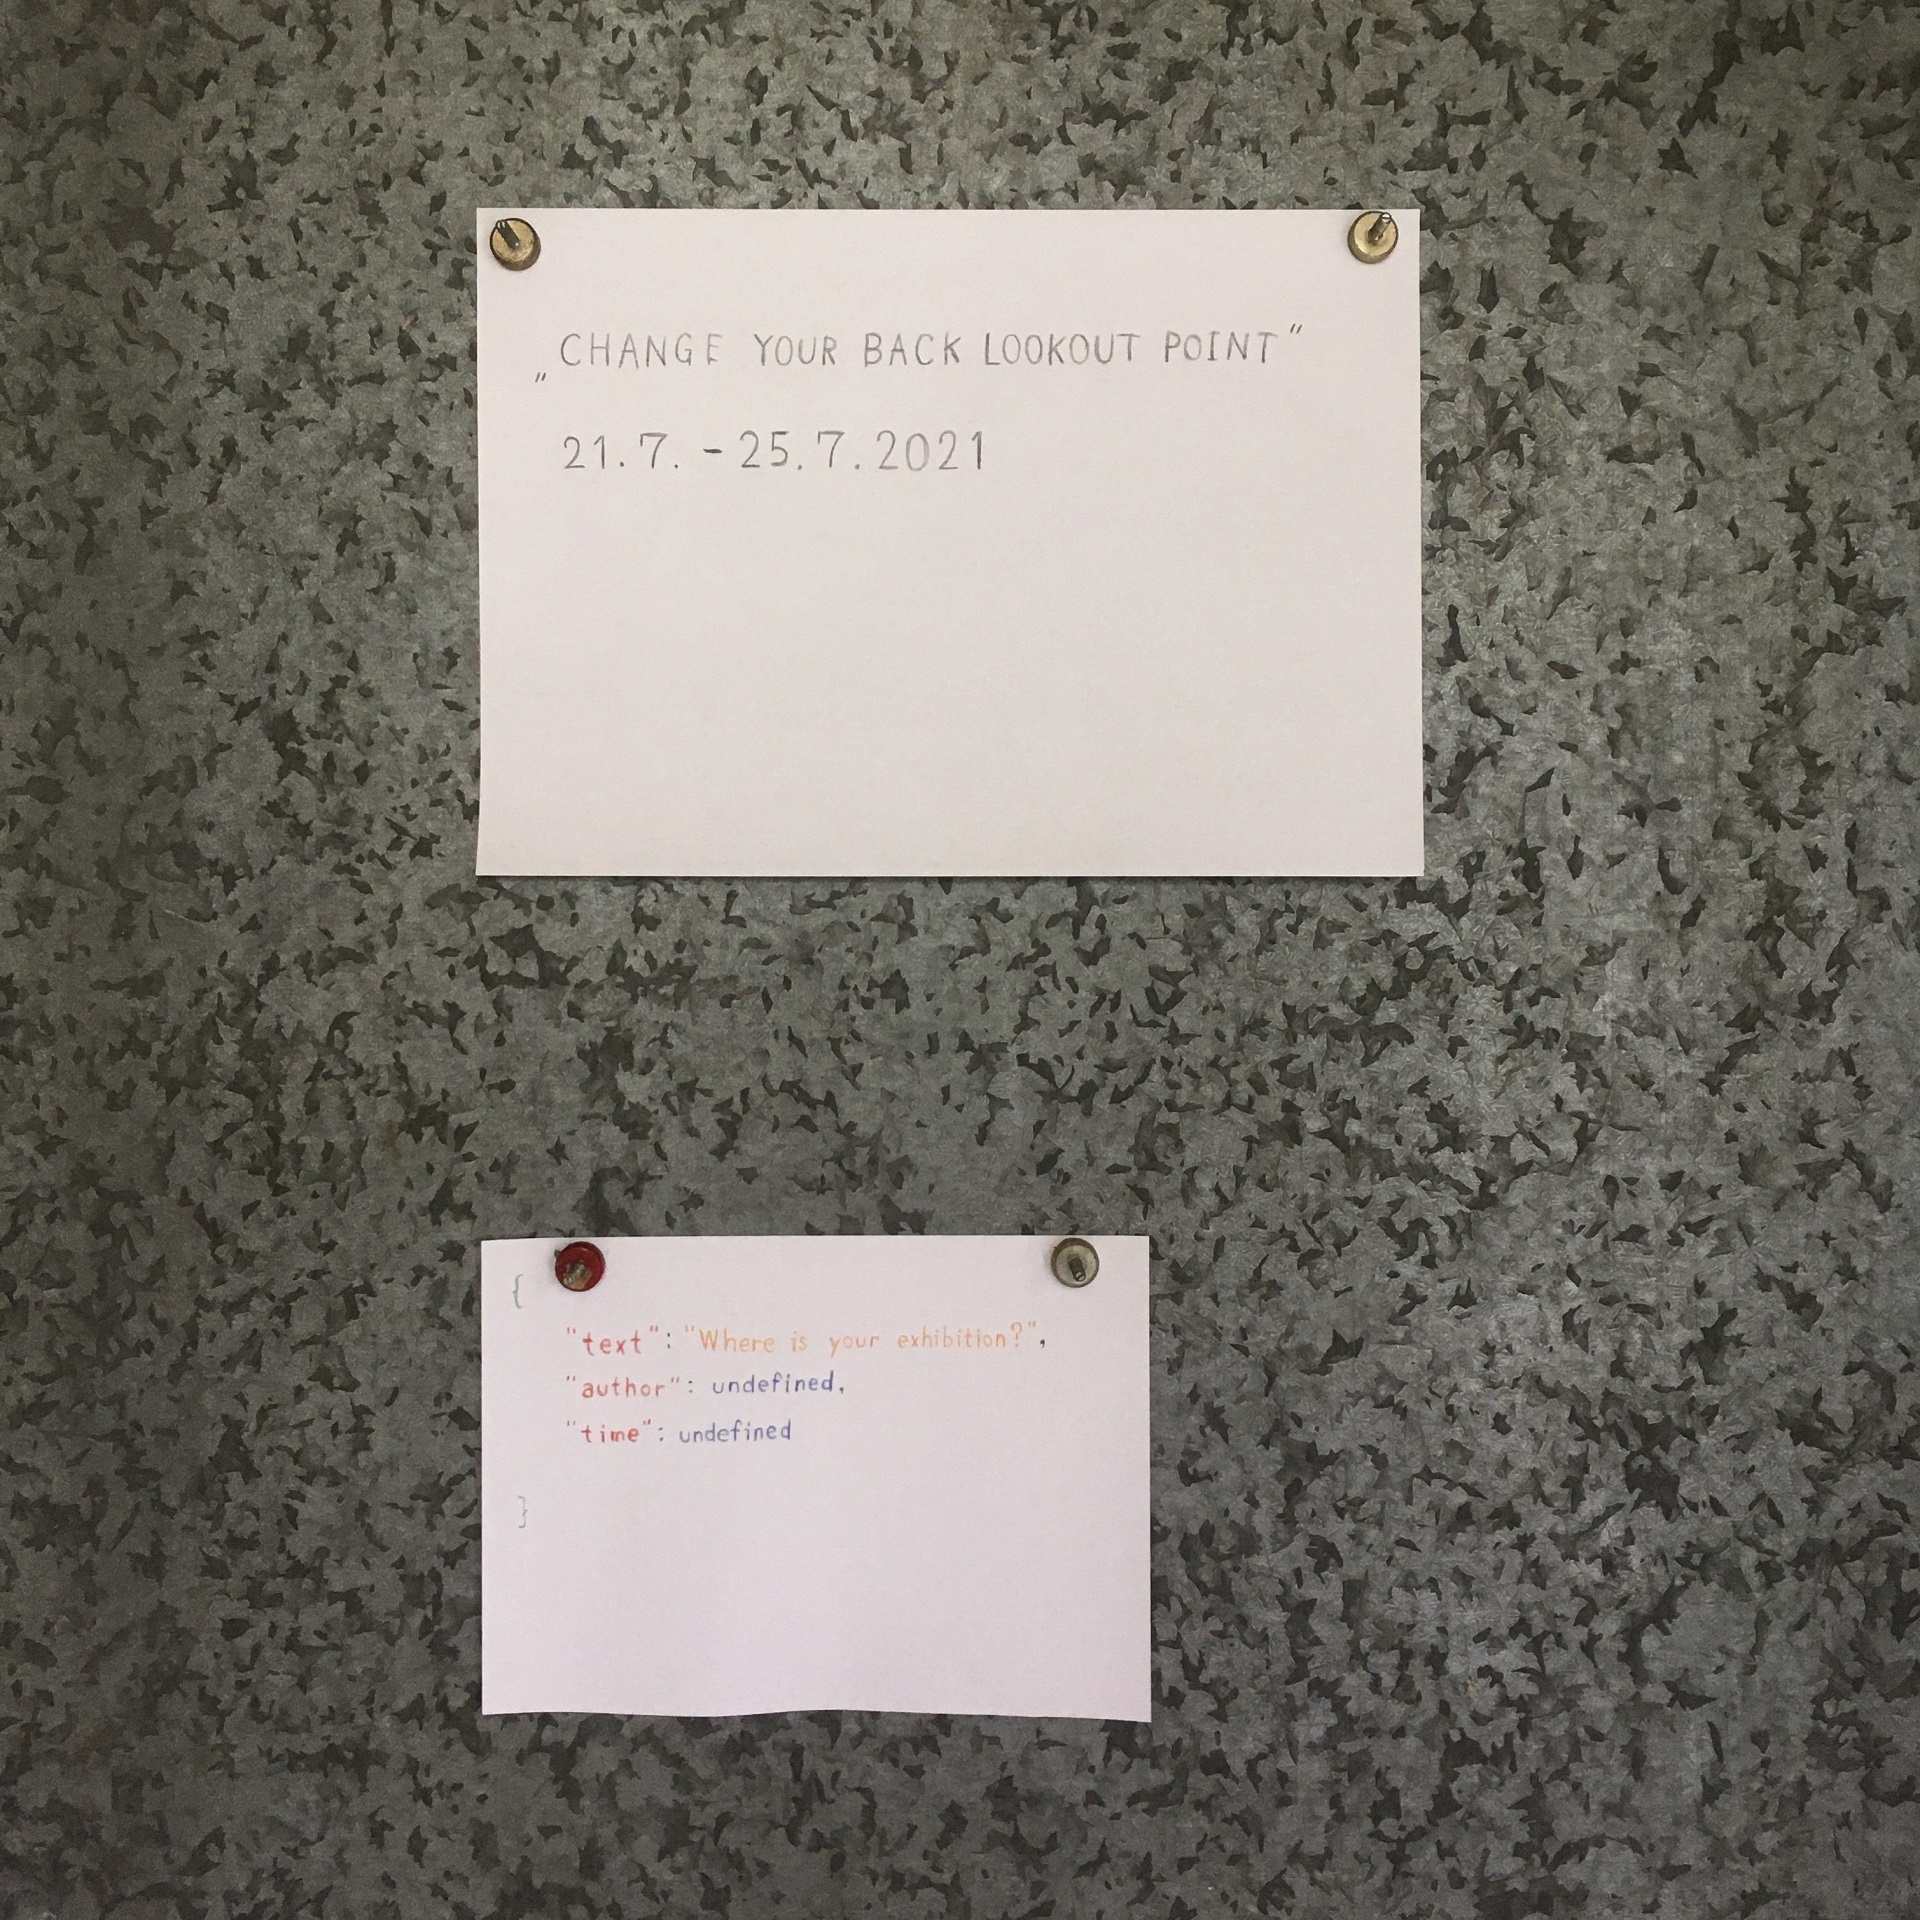 „CHANGE YOUR BACK LOOKOUT POINT“
21.7. - 25.7.2021
{
"text": "Where is your exhibition?",
"author": undefined,
"time": undefined
}